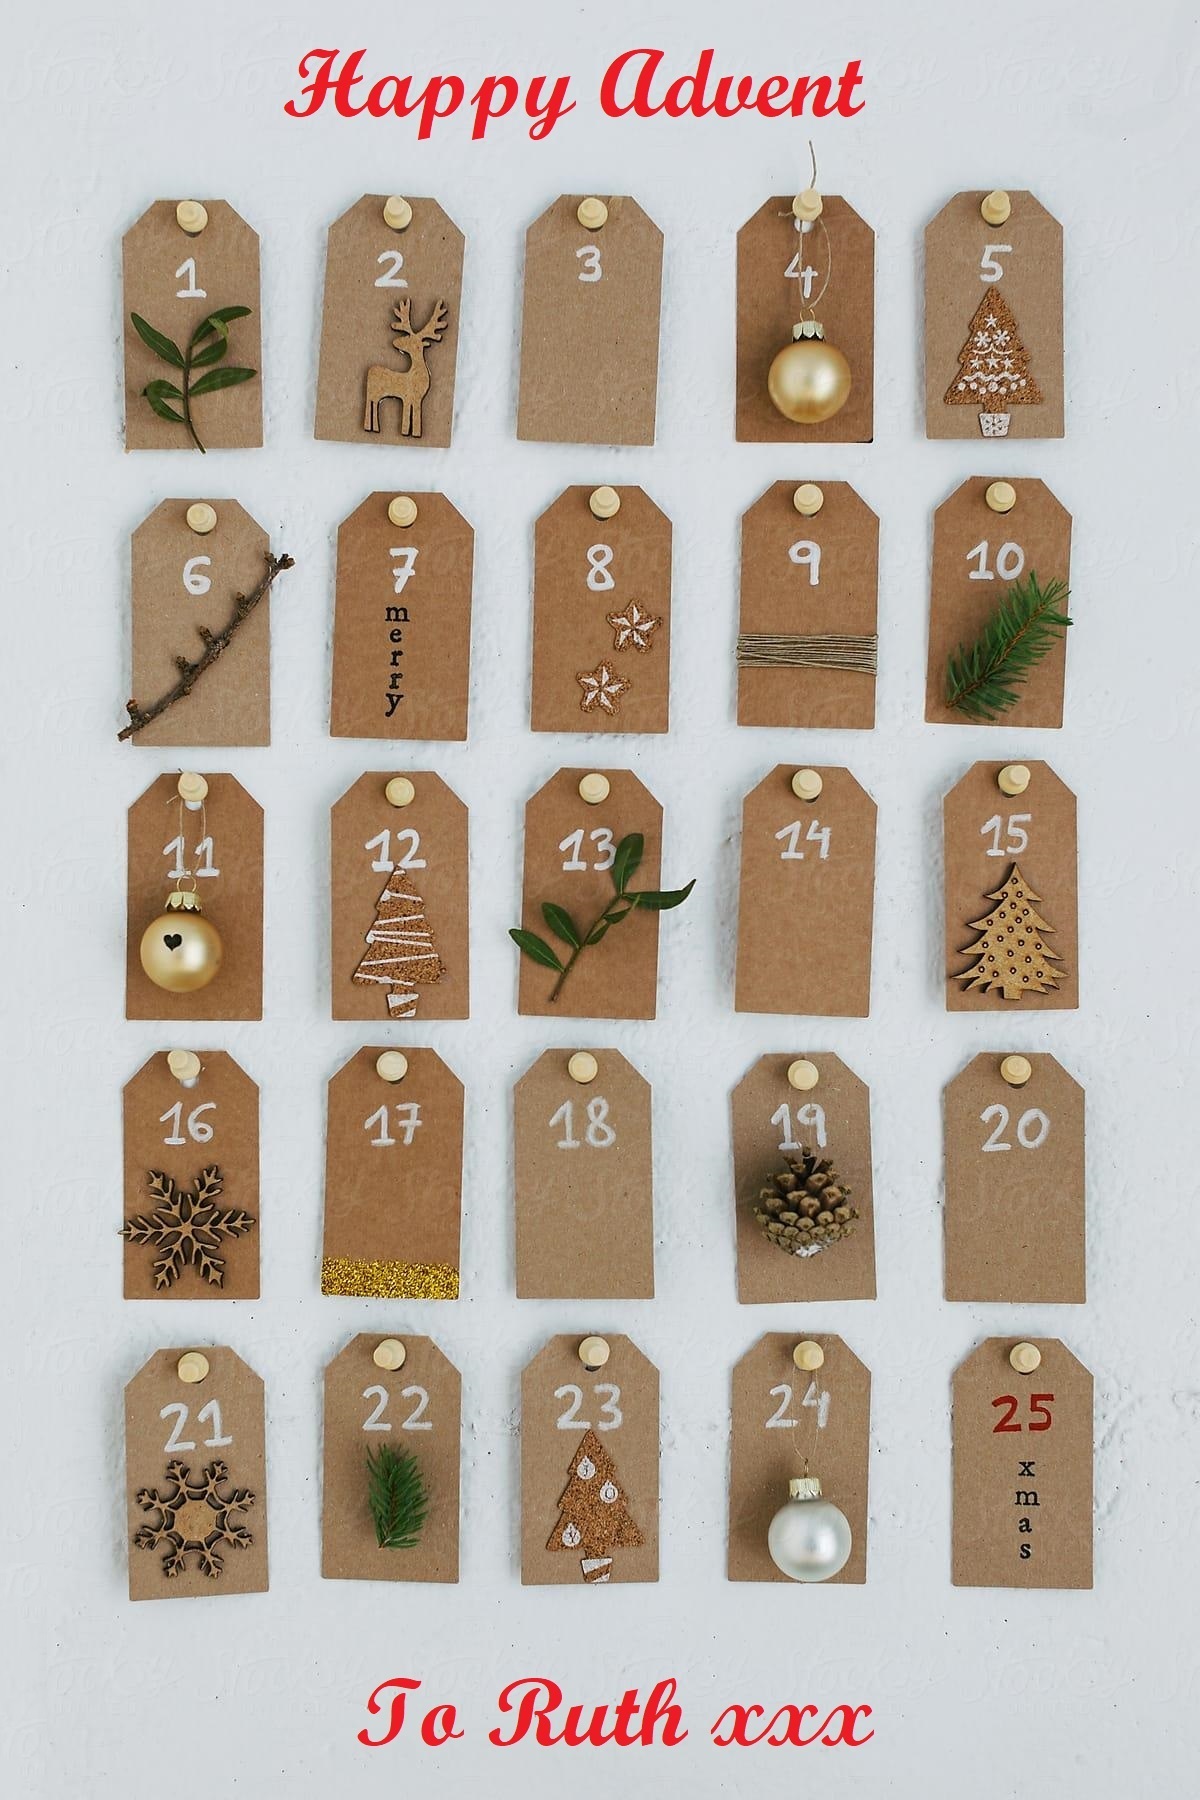 Happy Advent
1 2 3 4 5
6 7 8 9 10
merry
11 12 13 14 15
16 17 18 19 20
21 22 23 24 25
J
O
Y
xmas
To Ruth xxx